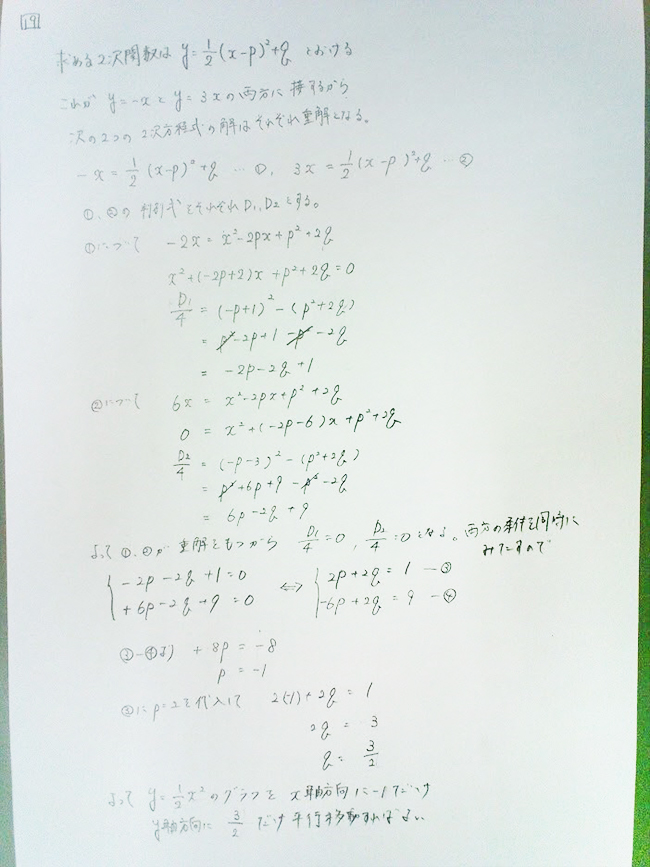 19
求める2次関数は y=1/2(x-p)²+q とおける
これが y=-x と y=3x の両方に接するから
次の2つの2次方程式の解はそれぞれ重解となる。
-x=1/2(x-p)²+q … ①, 3x=1/2(x-p)²+q … ②
①、②の判別式をそれぞれD₁、D₂とする。
①について -2x=x²-2px+p²+2q
x²+(-2p+2)x+p²+2q=0
D₁/4=(-p+1)²-(p²+2q)
=p²-2p+1-p²-2q
=-2p-2q+1
②について 6x=x²-2px+p²+2q
0=x²+(-2p-6)x+p²+2q
D₂/4=(-p-3)²-(p²+2q)
=p²+6p+9-p²-2q
=6p-2q+9
よって①、②が重解をもつから D₁/4=0, D₂/4=0となる。両方の条件を同時に
みたすので
{-2p-2q+1=0 ⇔ {2p+2q=1 -③
+6p-2q+9=0 -6p+2q=9 -④
③-④より +8p=-8
p=-1
③にp=2を代入して 2(-1)+2q=1
2q=3
q=3/2
よって y=1/2x²のグラフを x軸方向に-1だけ
y軸方向に 3/2 だけ平行移動すればよい